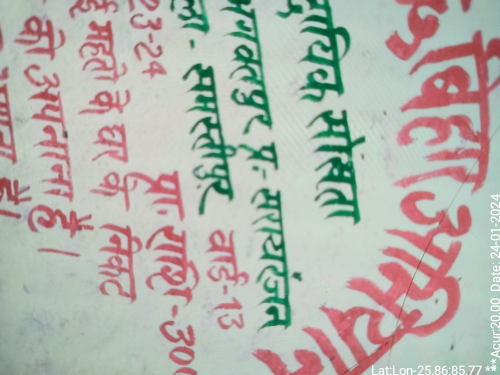 बिहार अभियान
मुदायिक सोख्ता
भगवतपुर प्र॰- सरायरंजन
ला - समस्तीपुर वार्ड-13
23-24 प्रा. राशि-300
महतो के घर के निकट
को अपनाना है।
है।
Lat:Lon-25.86:85.77
**Acur:20.00 Date: 24-01-2024